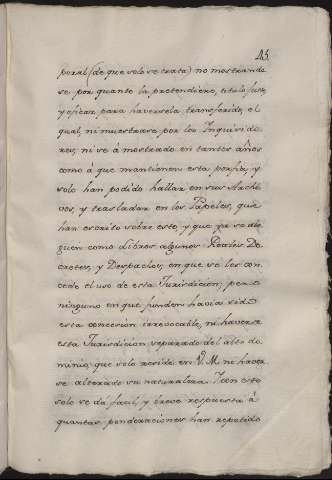 45
poral (de que solo se trata) no mostrando
se por quanto la pretendiere, titulo justo,
y eficaz, para haversela transferido, el
qual, ni muestrase por los Inquisido
res, ni se á mostrado en tantos años
como á que mantienen esta porfia, y
solo han podido hallar en sus Archi
vos, y trasladar en los Papeles, que
han escrito sobre esto, y que ya se ale
guen como dichos algunos Reales De
cretos, y Despachos, en que se les con
cede el uso de esta Jurisdicion; pero
ninguno en que funden havia sido
esta concesion irrevocable, ni haverse
esta Jurisdicion separado del alto do
minio, que solo reside en V. M. ni haver
se alterado su naturaleza. I con esto
solo se dá facil, y breve respuesta á
quantas ponderaciones han repetido